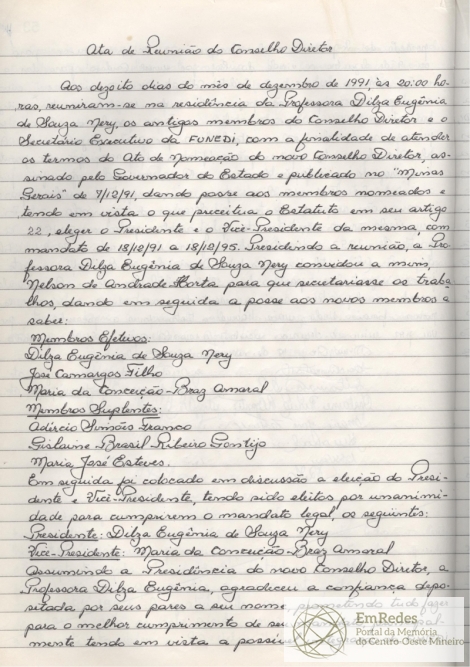 Ata de Reunião do Conselho Diretor
Aos dezoito dias do mês de dezembro de 1991, às 20:00 ho-
ras, reuniram-se na residência da Professora Dilza Eugênia
de Souza Nery, os antigos membros do Conselho Diretor e o
Secretário Executivo da FUNEDI, com a finalidade de atender
os termos do Ato de Nomeação do novo Conselho Diretor, as-
sinado pelo Governador do Estado e publicado no "Minas
Gerais" de 7/12/91, dando posse aos membros nomeados e
tendo em vista o que preceitua o Estatuto em seu artigo
22, eleger o Presidente e o Vice-Presidente da mesma, com
mandato de 18/12/91 a 18/12/95. Presidindo a reunião, a Pro-
fessora Dilza Eugênia de Souza Nery convidou a mim,
Nelson de Andrade Horta para que secretariasse os traba-
lhos, dando em seguida a posse aos novos membros a
saber:
Membros Efetivos:
Dilza Eugênia de Souza Nery
José Camargos Filho
Maria da Conceição Braz Amaral
Membros Suplentes:
Adircio Simões Franco
Gislaine Brasil Ribeiro Gontijo
Maria José Esteves.
Em seguida foi colocado em discussão a eleição do Presi-
dente e Vice-Presidente, tendo sido eleitos por unanimi-
dade para cumprirem o mandato legal, os seguintes:
Presidente: Dilza Eugênia de Souza Nery
Vice-Presidente: Maria da Conceição Braz Amaral
Assumindo a Presidência do novo Conselho Diretor, a
Professora Dilza Eugênia, agradeceu a confiança depo-
sitada por seus pares a seu nome, prometendo tudo fazer
para o melhor cumprimento de seu
mente tendo em vista a
EmRedes
Portal da Memória
do Centro-Oeste Mineiro